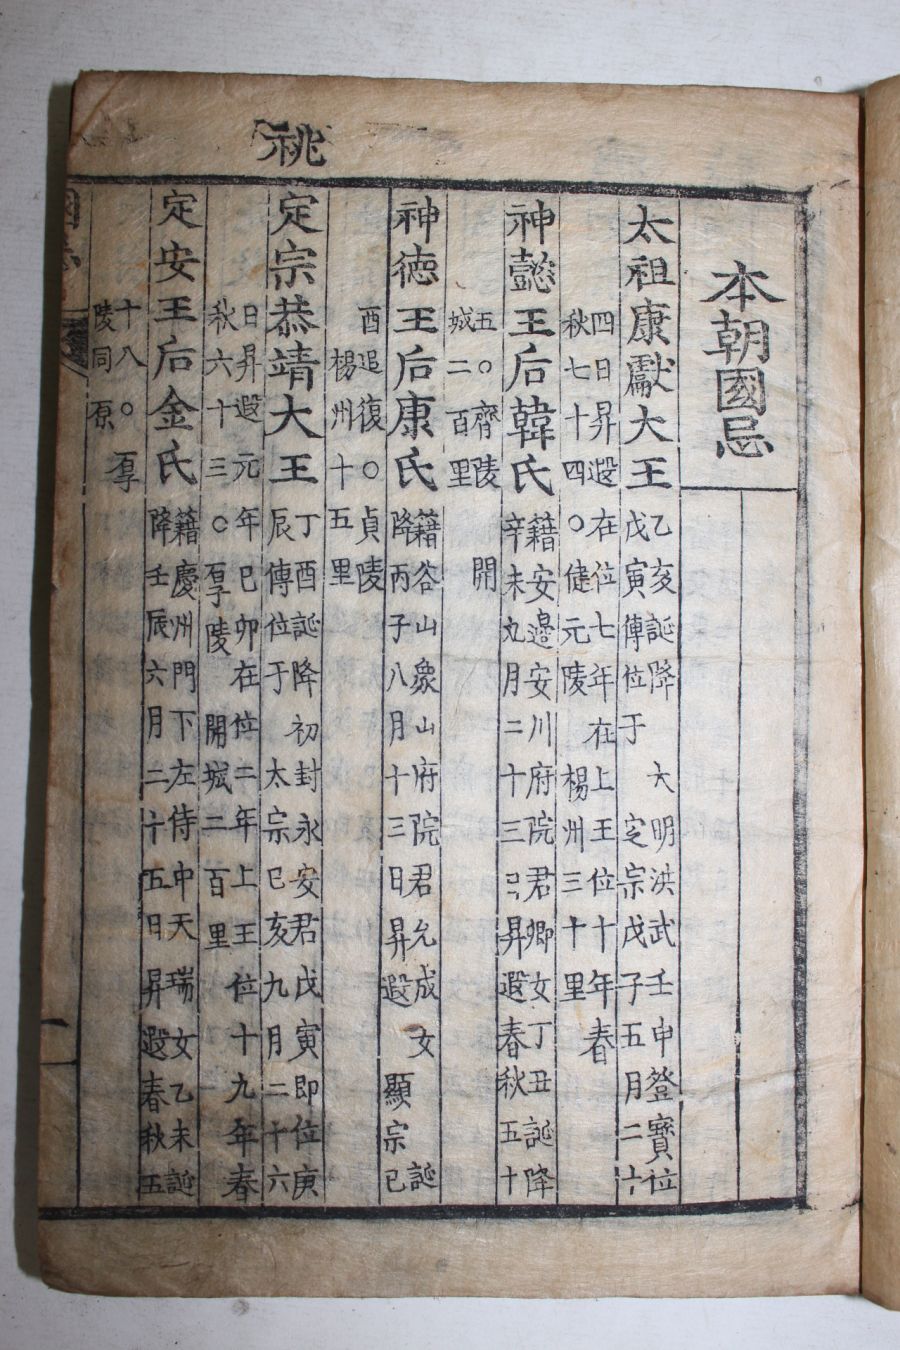 本朝國忌
太祖康獻大王
乙亥誕降 大明洪武壬申登寶位
戊寅傳位于 定宗戊子五月二十
四日昇遐在位七年在上王位十年春
秋七十四○健元陵楊州三十里
神懿王后韓氏
籍安邊安川府院君卿女丁丑誕降
辛未九月二十三日昇遐春秋五十
五○齊陵開
城二百里
神德王后康氏
籍谷山象山府院君允成女 誕
降丙子八月十三日昇遐 顯宗己
酉追復○貞陵
楊州十五里
祧
定宗恭靖大王
丁酉誕降初封永安君戊寅即位庚
辰傳位于 太宗己亥九月二十六
日昇遐元年己卯在位二年上王位十九年春
秋六十三○厚陵開城二百里
定安王后金氏
籍慶州門下左侍中天瑞女乙未誕
降壬辰六月二十五日昇遐春秋五
十八○厚
陵同原
國忌
一